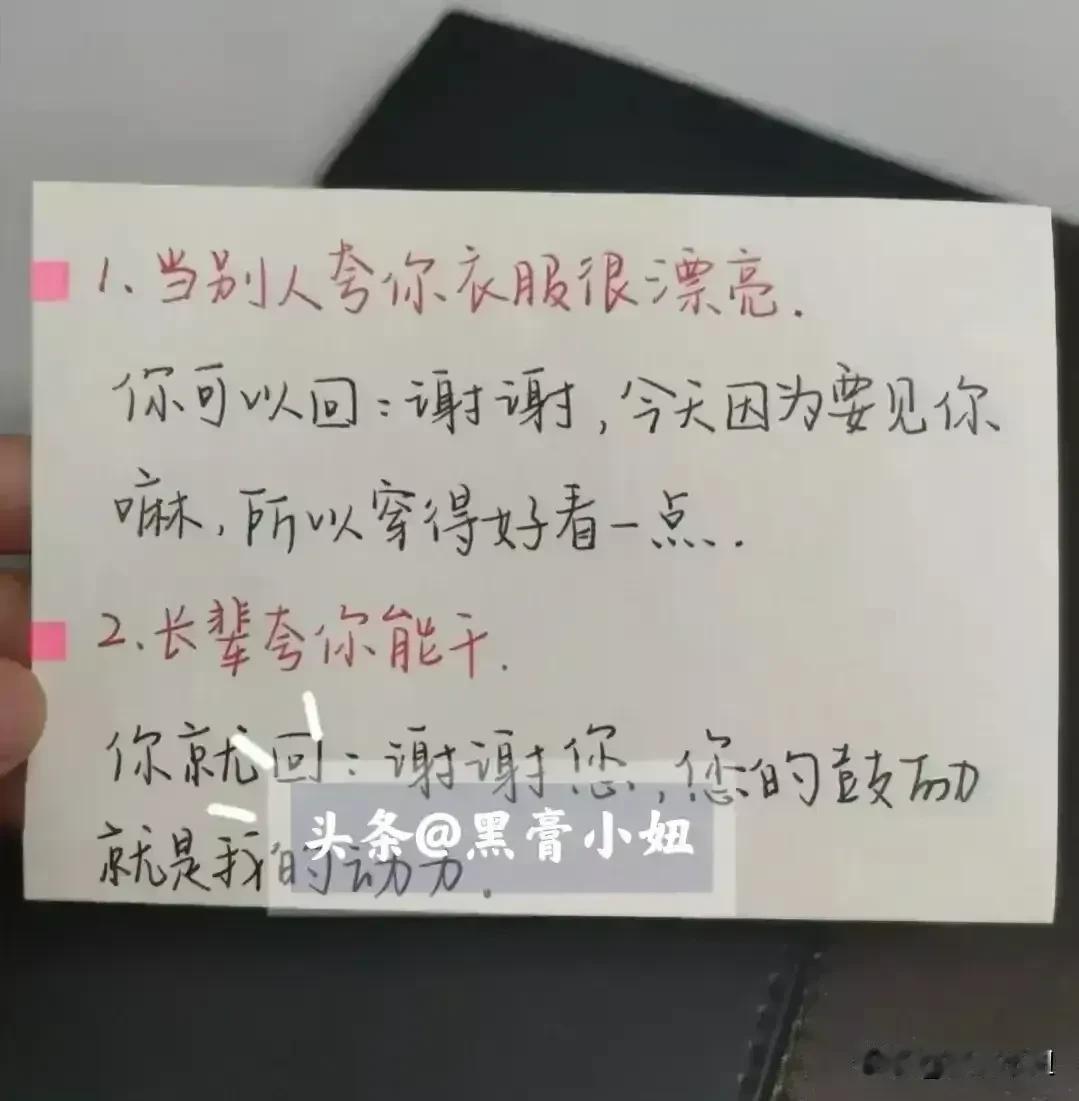 1、当别人夸你衣服很漂亮.
你可以回：谢谢，今天因为要见你
嘛，所以穿得好看一点.
2、长辈夸你能干.
你就回：谢谢您，您的鼓励
就是我的动力.
头条@黑膏小妞